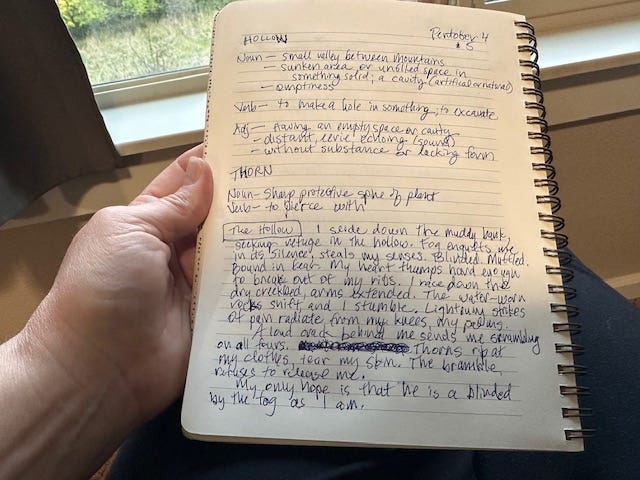 HOLLOW
Pentober 4
& 5
Noun - small valley between mountains
sunken area or unfilled space in
something solid; a cavity (artificial or natural)
- emptiness
Verb - to make a hole in something; to excavate
Adj - Having an empty space or cavity
- distant, eerie, echoing (sound)
- without substance or lacking form
THORN
Noun - Sharp protective spine of plant
Verb - to pierce with
The Hollow I slide down the muddy bank,
seeking refuge in the hollow. Fog engulfs me
in its silence, steals my senses. Blinded. Muffled.
Bound in fear. My heart thumps hard enough
to break out of my ribs. I race down the
dry creekbed, arms extended. The water-worn
rocks shift and I stumble. Lightning strikes
of pain radiate from my knees, my palms.
A loud crack behind me sends me scrambling
on all fours. Thorns rip at
my clothes, tear my skin. The bramble
refuses to release me.
My only hope is that he is a blinded
by the fog as I am.